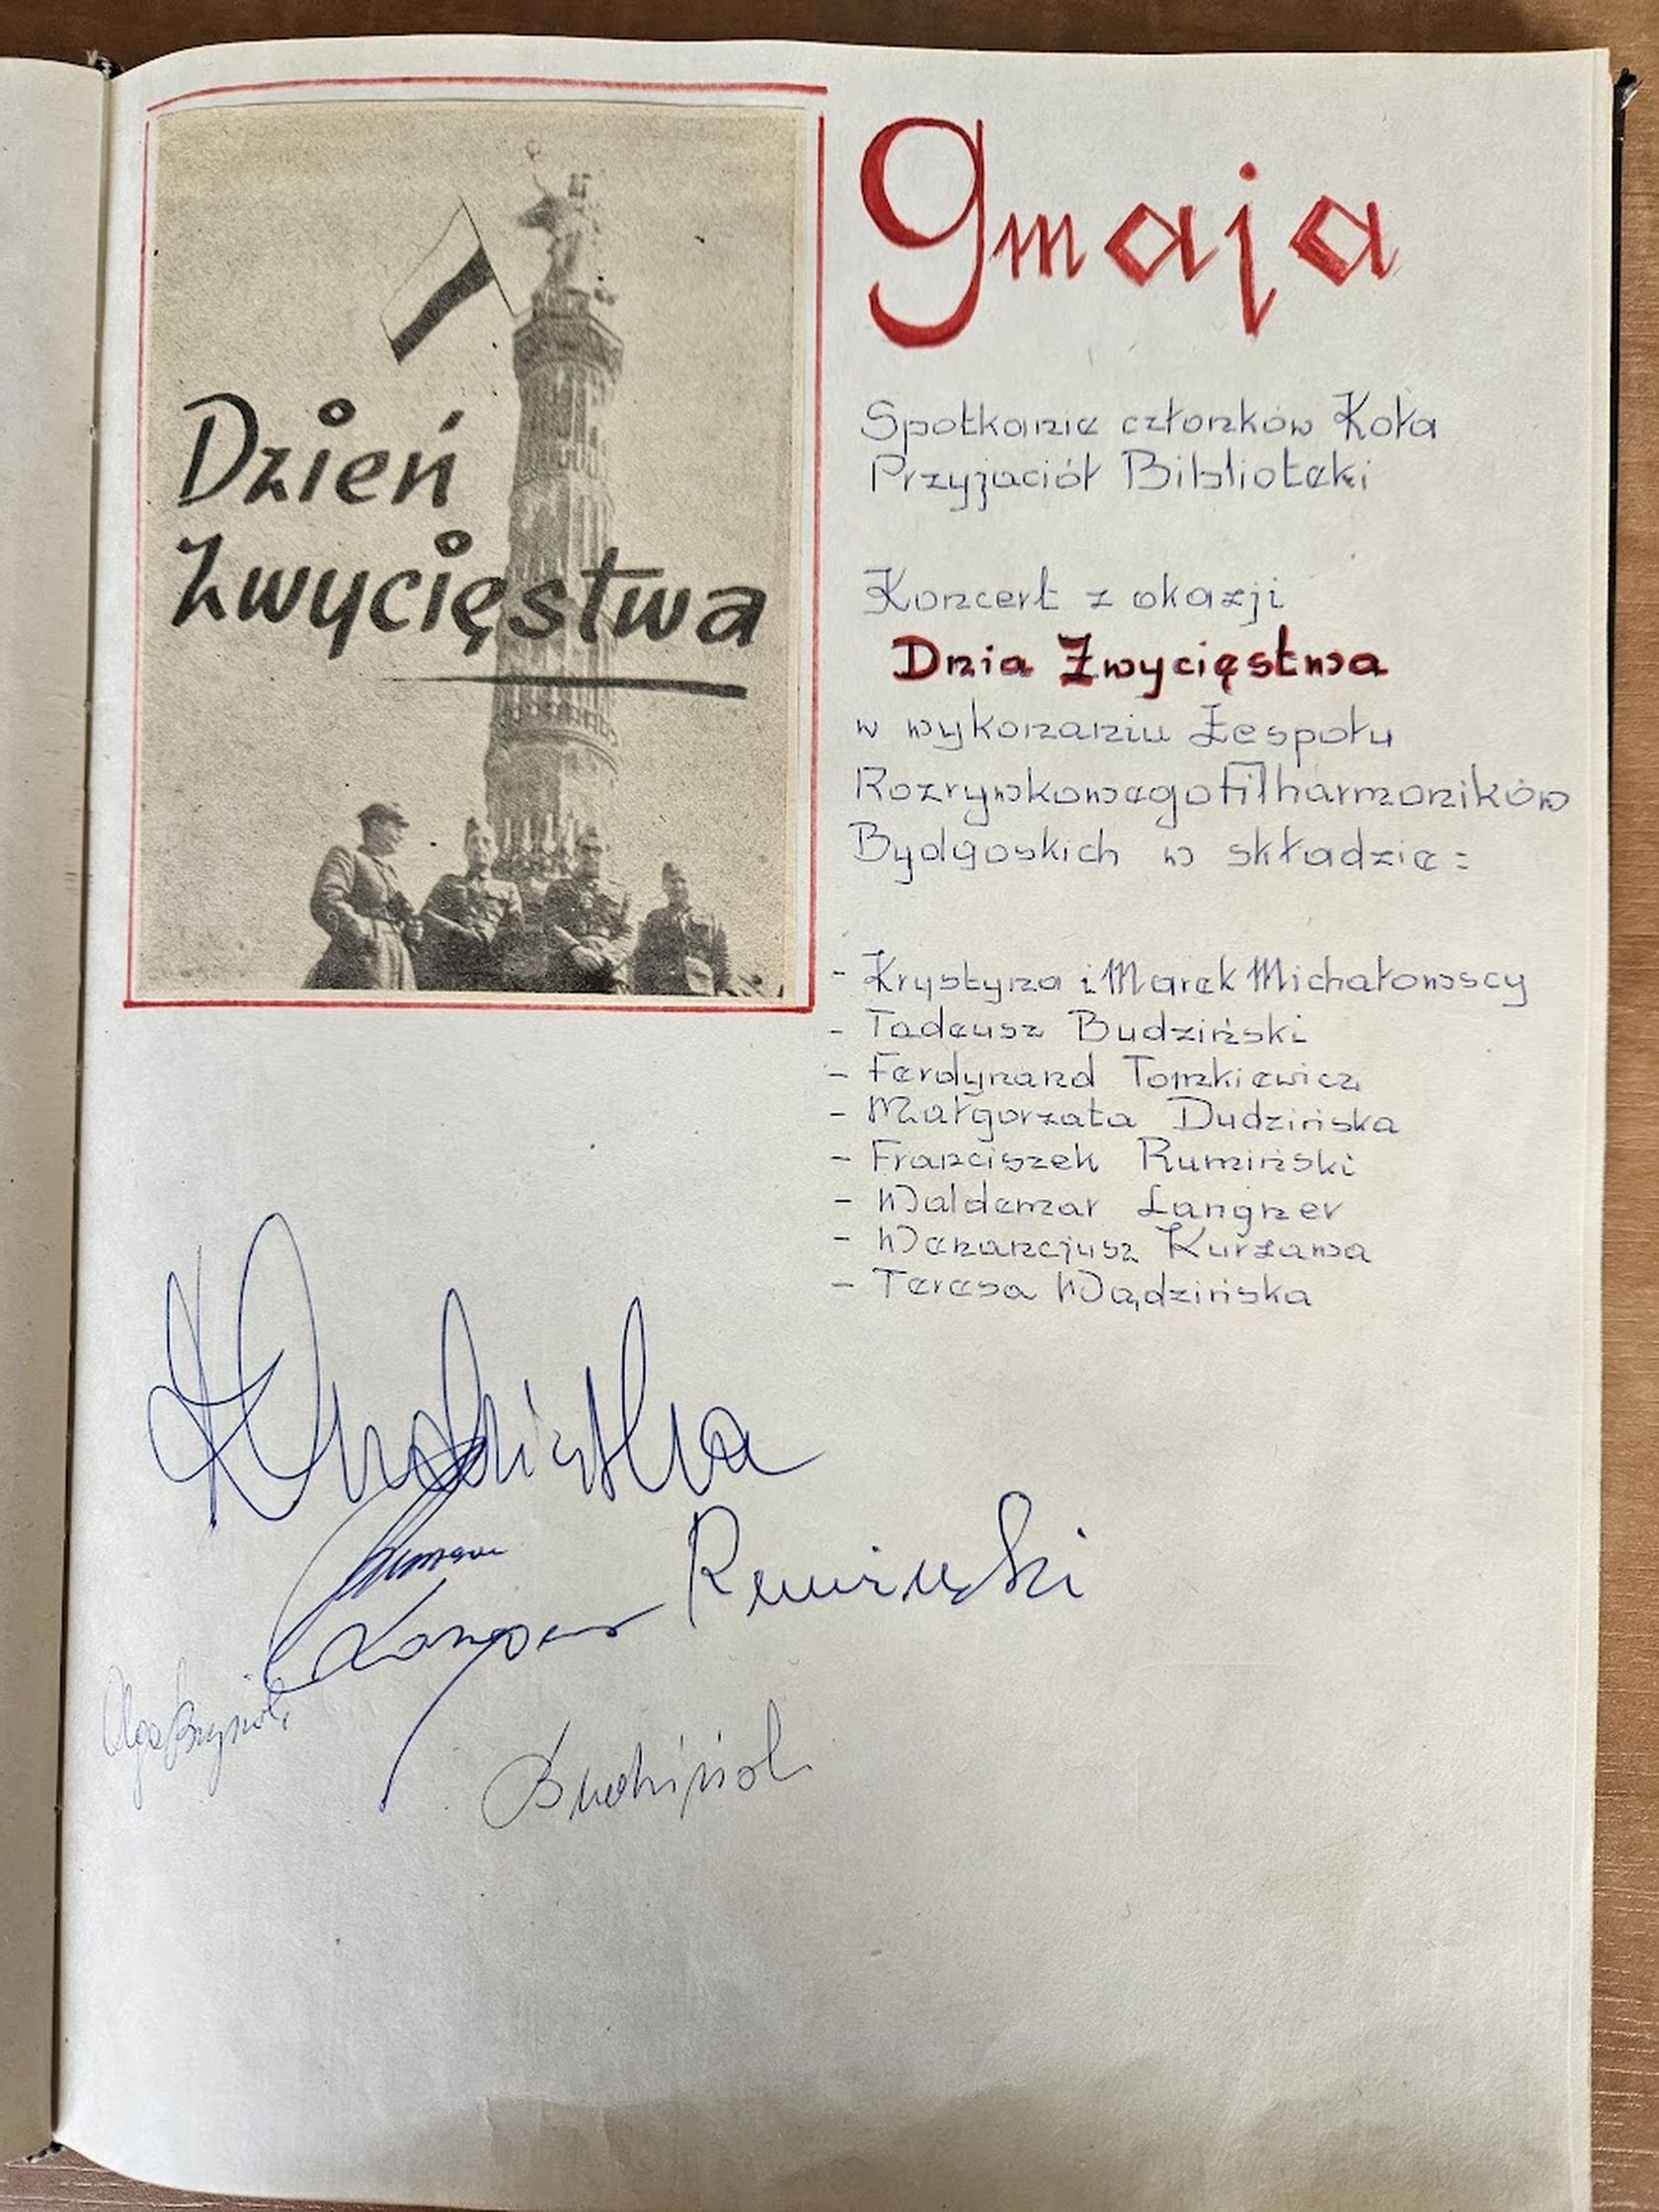 Dzień
Zwycięstwa
9 maja
Spotkanie członków Koła
Przyjaciół Biblioteki
Koncert z okazji
Dnia Zwycięstwa
w wykonaniu Zespołu
Rozrywkowego Filharmoników
Bydgoskich w składzie:
- Krystyna i Marek Michałowscy
- Tadeusz Budziński
- Ferdynand Tomkiewicz
- Małgorzata Dudzińska
- Franciszek Rumiński
- Waldemar Langner
- Wenancjusz Kurzawa
- Teresa Wądzińska
Rumiński
Budziński